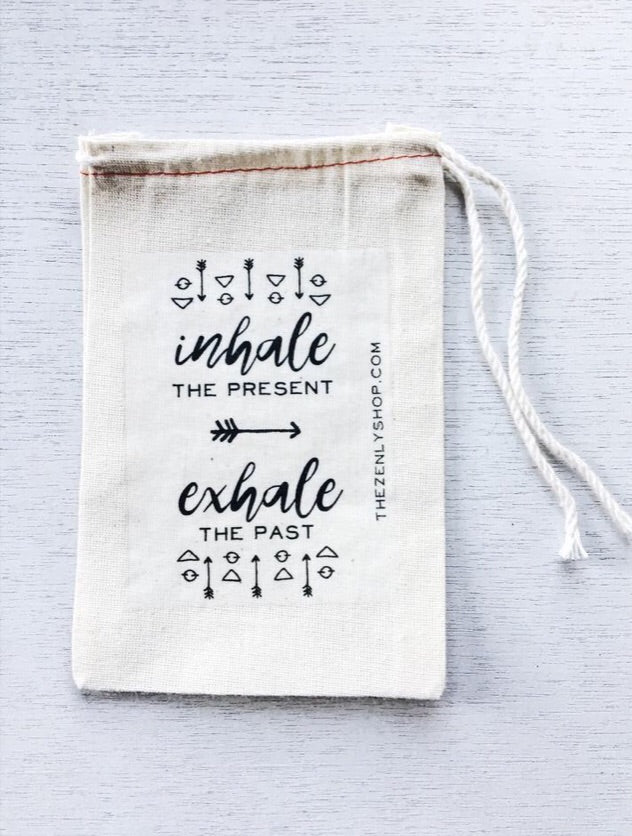 inhale
THE PRESENT
exhale
THE PAST
THEZENLYSHOP.COM